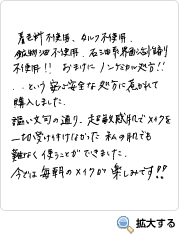 着色料不使用、タルク不使用、
鉱物油不使用、石油系界面活性剤
不使用!! おまけにノンケミカル処方!!
…という安心安全な処方に惹かれて
購入しました。
謳い文句の通り、超敏感肌でメイクを
一切受け付けなかった私の肌でも
難なく使うことができました。
今では毎朝のメイクが楽しみです!!
拡大する